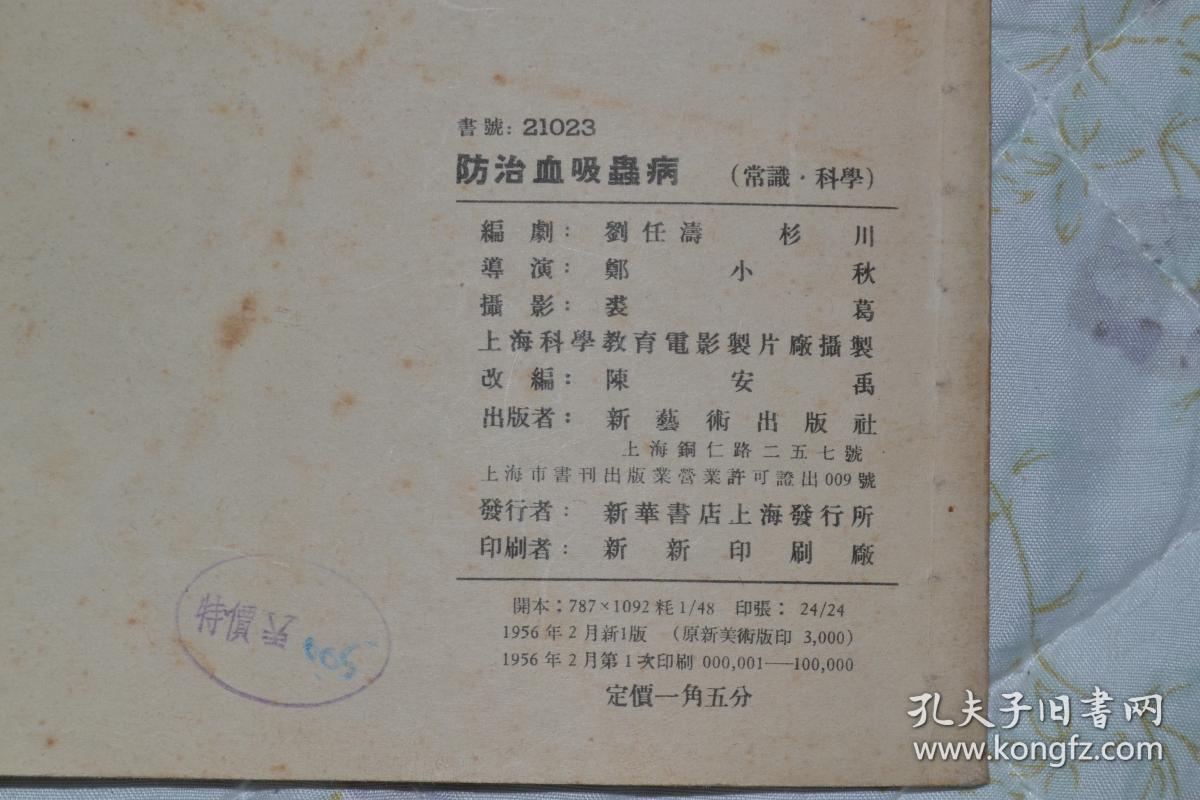 書號: 21023
防治血吸蟲病 (常識·科學)
編劇: 劉任濤 杉川
導演: 鄭小秋
攝影: 裘葛
上海科學教育電影製片廠攝製
改編: 陳安禹
出版者: 新藝術出版社
上海銅仁路二五七號
上海市書刊出版業營業許可證出009號
發行者: 新華書店上海發行所
印刷者: 新新印刷廠
開本: 787×1092 粍 1/48 印張: 24/24
1956年2月新1版 (原新美術版印 3,000)
1956年2月第1次印刷 000,001—100,000
定價一角五分
特價
孔夫子旧书网
www.kongfz.com